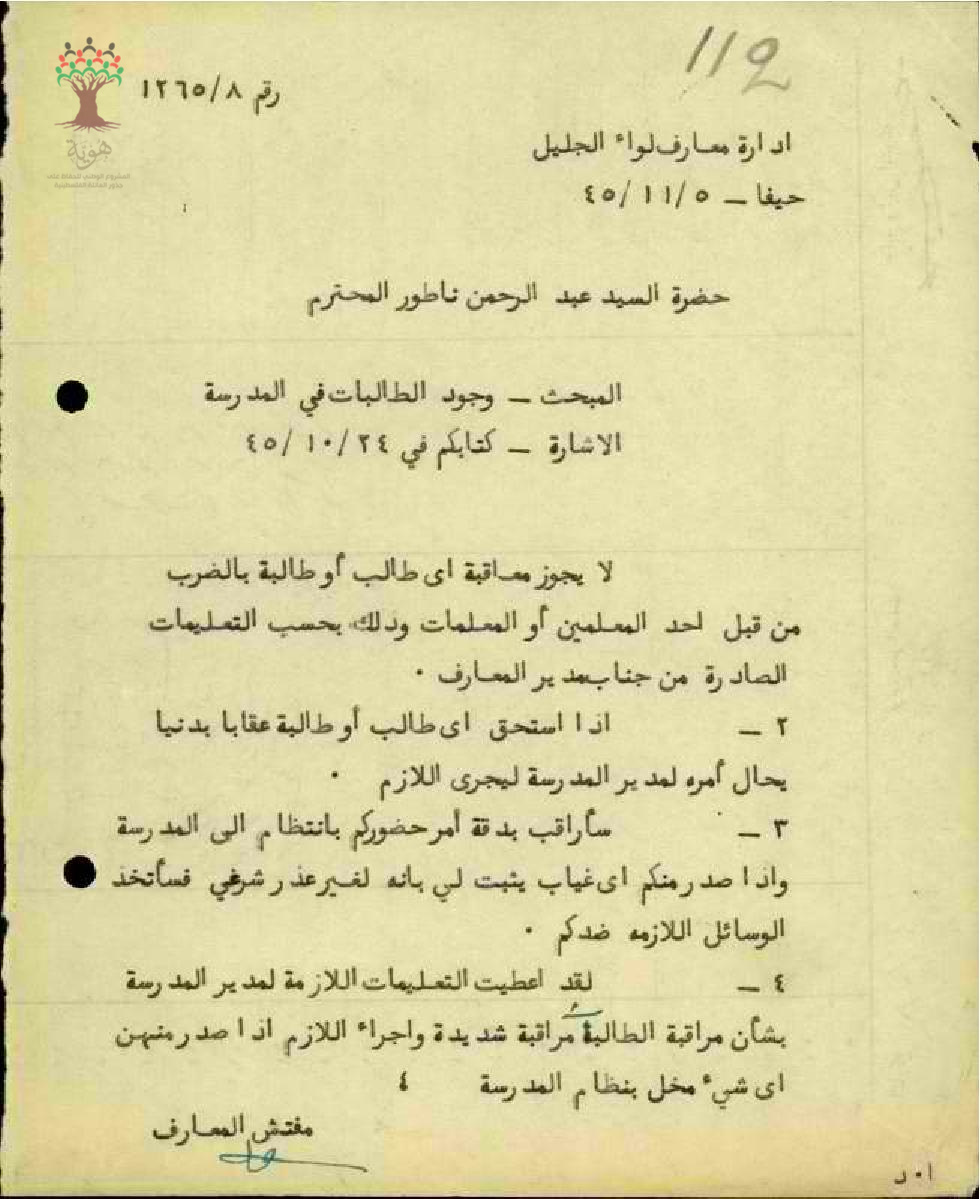 112
رقم ١٢٦٥/٨
هوية
المشروع الوطني للحفاظ على
جذور العائلة الفلسطينية
ادارة معارف لواء الجليل
حيفا — ٤٥/١١/٥
حضرة السيد عبد الرحمن ناطور المحترم
المبحث — وجود الطالبات في المدرسة
الاشارة — كتابكم في ٤٥/١٠/٢٤
لا يجوز معاقبة اى طالب أو طالبة بالضرب
من قبل احد المعلمين أو المعلمات وذلك بحسب التعليمات
الصادرة من جناب مدير المعارف ٠
٢ — اذا استحق اى طالب أو طالبة عقابا بدنيا
يحال أمره لمدير المدرسة ليجرى اللازم ٠
٣ — سأراقب بدقة أمر حضوركم بانتظام الى المدرسة
واذا صدر منكم اى غياب يثبت لي بانه لغير عذر شرعي فسأتخذ
الوسائل اللازمه ضدكم ٠
٤ — لقد اعطيت التعليمات اللازمة لمدير المدرسة
بشأن مراقبة الطالبات مراقبة شديدة واجراء اللازم اذا صدر منهن
اى شيء مخل بنظام المدرسة ٤
مفتش المعارف
ا٠د